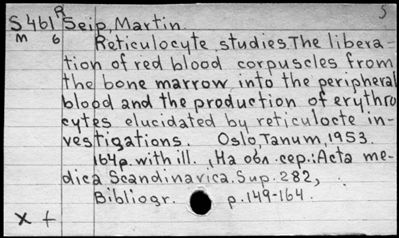 S461R Seip, Martin. 5
M 6 Reticulocyte studies. The libera-
tion of red blood corpuscles from
the bone marrow into the peripheral
blood and the production of erythro
cytes elucidated by reticulocte in-
vestigations. Oslo, Tanum, 1953.
164p. with ill. , На обл. сер.: Acta me-
dica Scandinavica. Sup. 282,
Bibliogr. p. 149-164.
x +